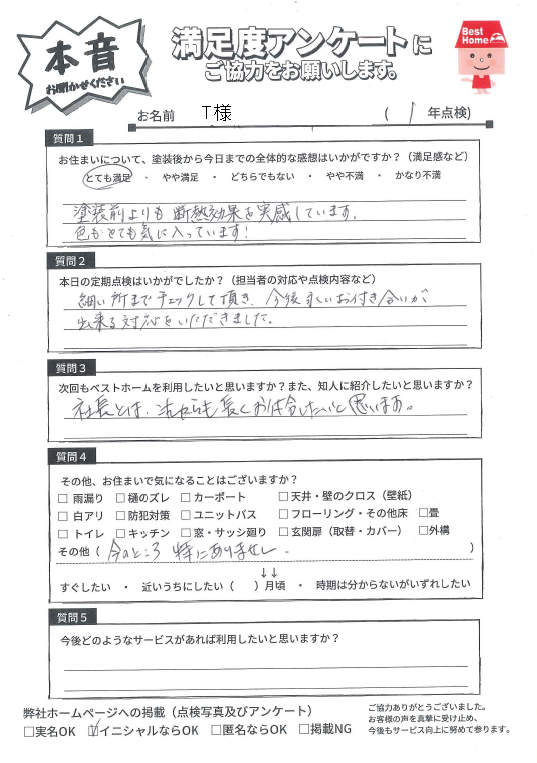 本音
お聞かせください
満足度アンケートに
ご協力をお願いします。
Best Home
お名前 T様 ( 1 年点検)
質問1
お住まいについて、塗装後から今日までの全体的な感想はいかがですか？（満足感など）
とても満足 ・ やや満足 ・ どちらでもない ・ やや不満 ・ かなり不満
塗装前よりも断熱効果を実感しています。
色もとても気に入っています！
質問2
本日の定期点検はいかがでしたか？（担当者の対応や点検内容など）
細い所までチェックして頂き、今後永いお付き合いが
出来る対応をいただきました。
質問3
次回もベストホームを利用したいと思いますか？また、知人に紹介したいと思いますか？
社長とは、これからも長くお付合したいと思います。
質問4
その他、お住まいで気になることはございますか？
□ 雨漏り □ 樋のズレ □ カーポート □ 天井・壁のクロス（壁紙）
□ 白アリ □ 防犯対策 □ ユニットバス □ フローリング・その他床 □畳
□ トイレ □ キッチン □ 窓・サッシ廻り □ 玄関扉（取替・カバー） □外構
その他（ 今のところ 特にありません ）
↓↓
すぐしたい ・ 近いうちにしたい（ ）月頃 ・ 時期は分からないがいずれしたい
質問5
今後どのようなサービスがあれば利用したいと思いますか？
弊社ホームページへの掲載（点検写真及びアンケート）
□実名OK ☑イニシャルならOK □匿名ならOK □掲載NG
ご協力ありがとうございました。
お客様の声を真摯に受け止め、
今後もサービス向上に努めて参ります。